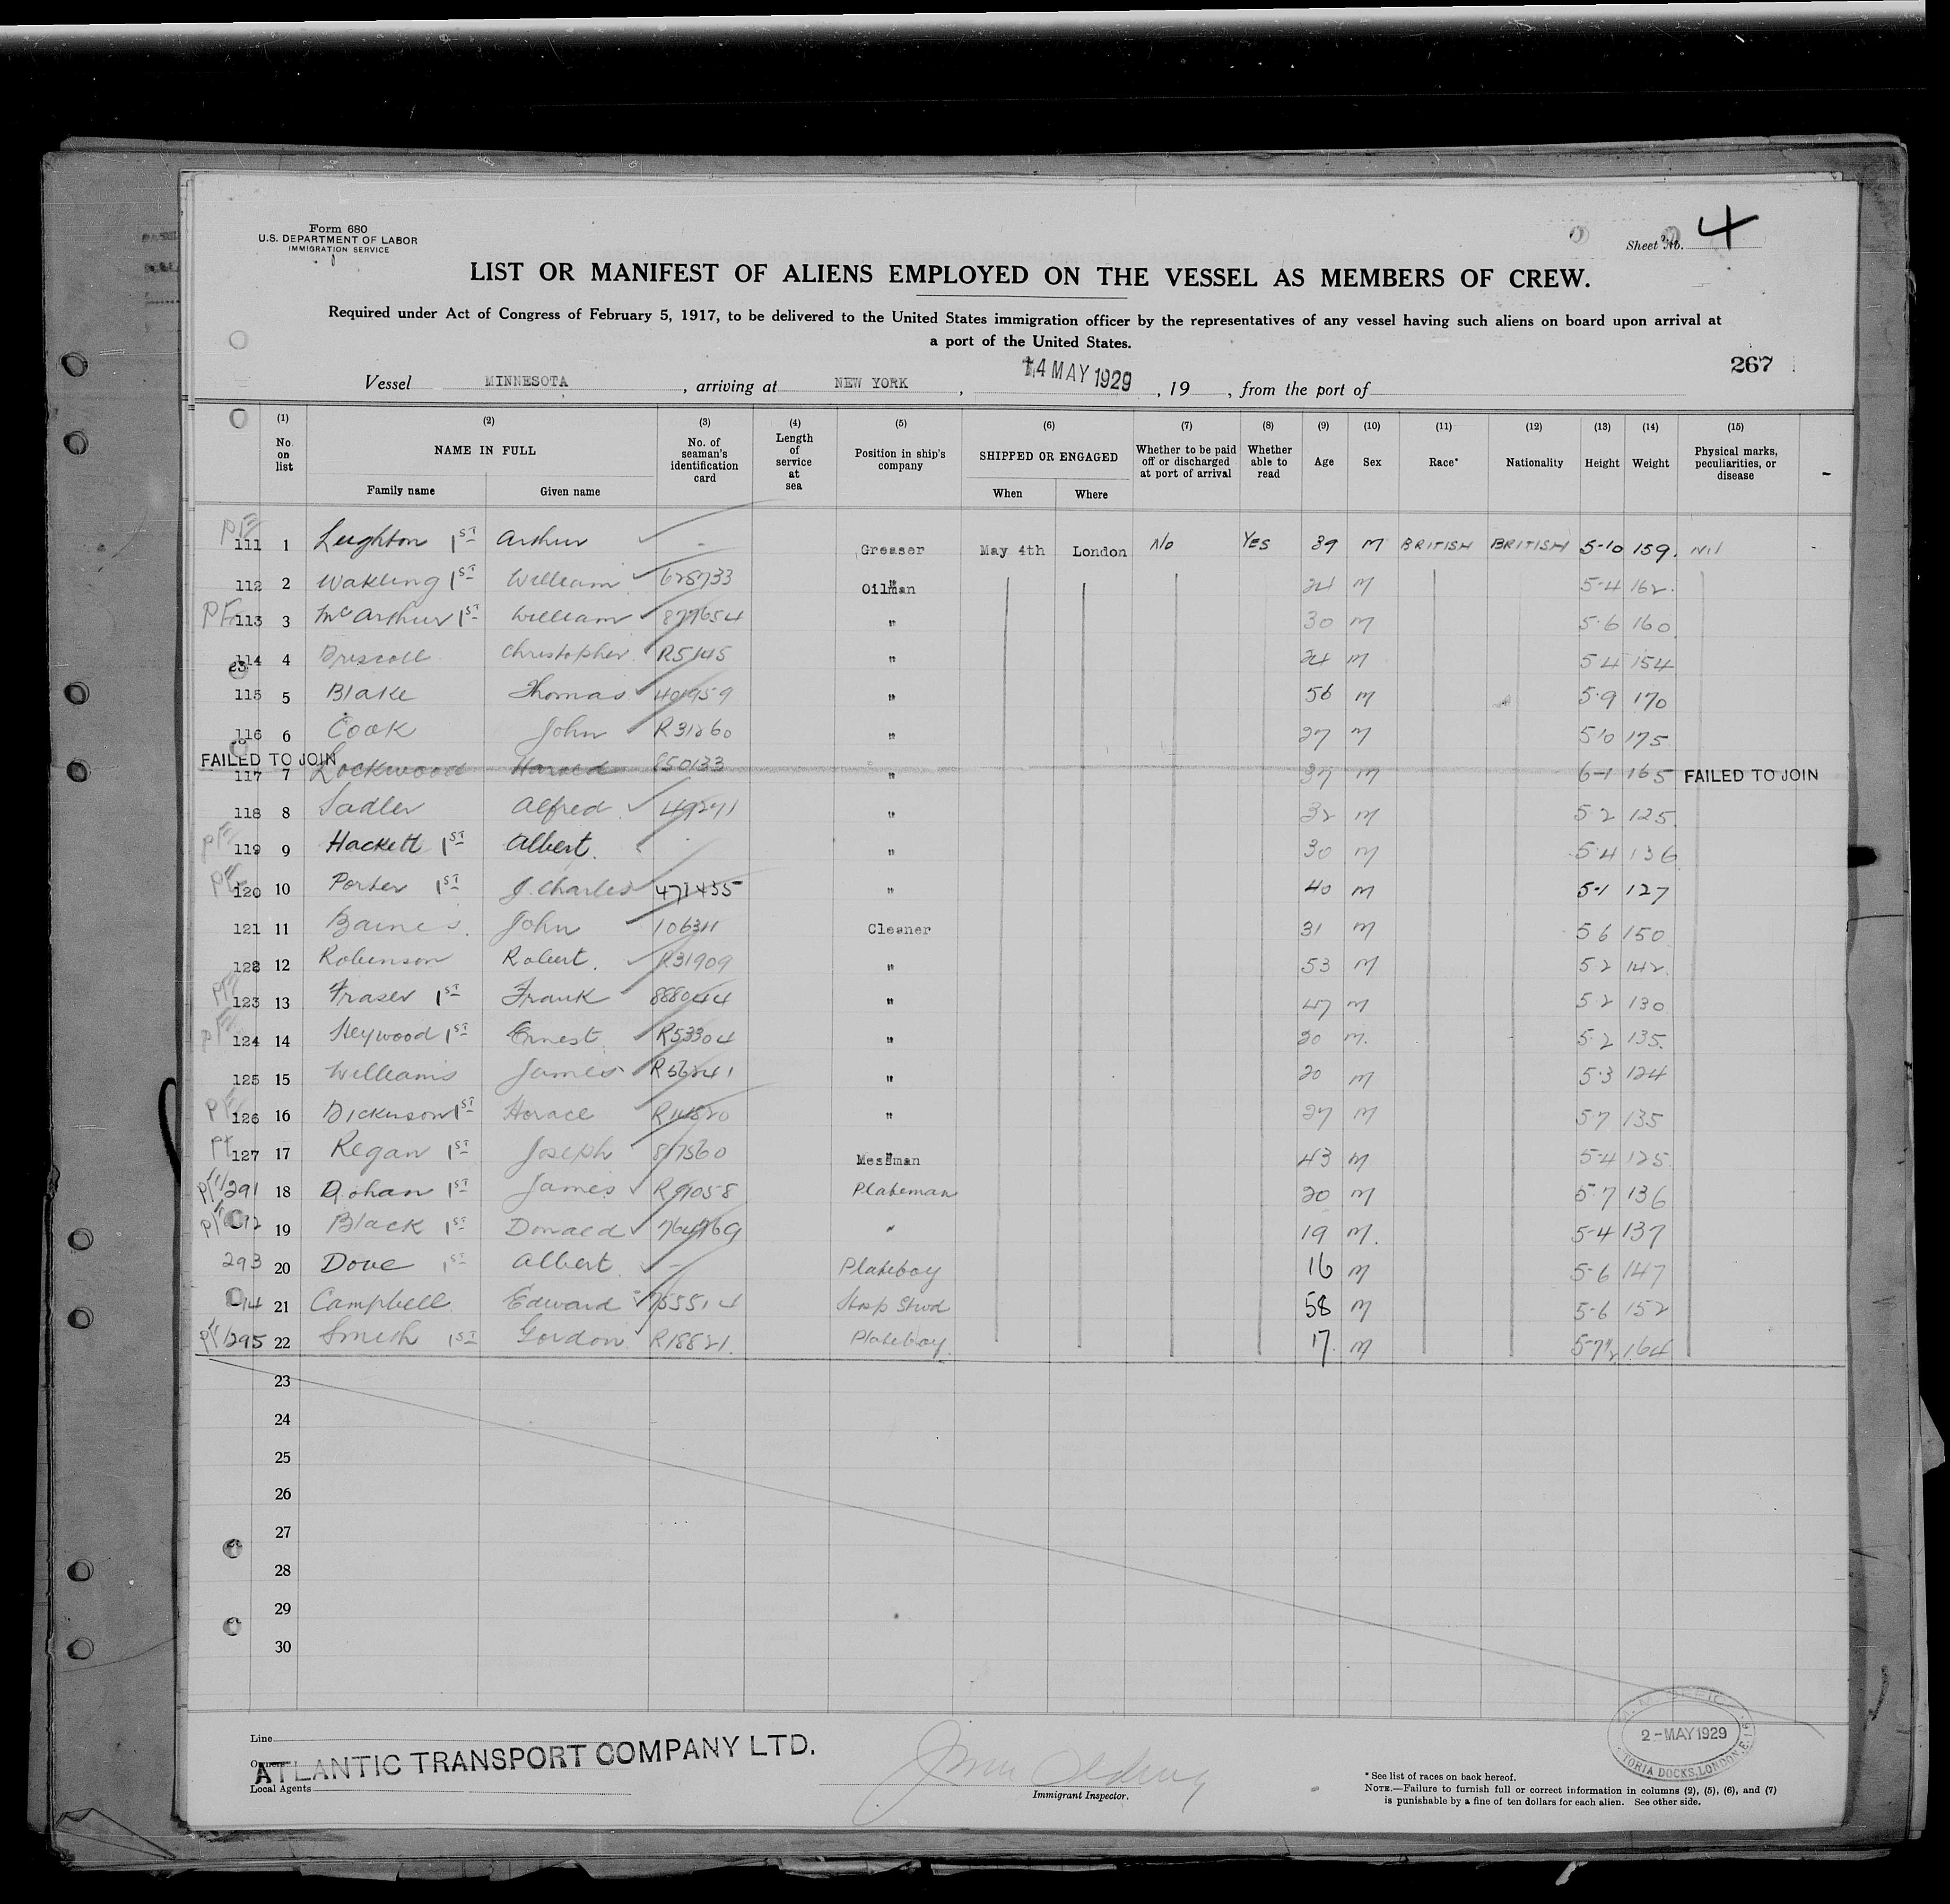 Form 680
U.S. DEPARTMENT OF LABOR
IMMIGRATION SERVICE
Sheet No. 4
LIST OR MANIFEST OF ALIENS EMPLOYED ON THE VESSEL AS MEMBERS OF CREW.
Required under Act of Congress of February 5, 1917, to be delivered to the United States immigration officer by the representatives of any vessel having such aliens on board upon arrival at
a port of the United States.
267
Vessel MINNESOTA, arriving at NEW YORK, 14 MAY 1929, 19 , from the port of
(1) No. on list (2) NAME IN FULL Family name Given name (3) No. of seaman's identification card (4) Length of service at sea (5) Position in ship's company (6) SHIPPED OR ENGAGED When Where (7) Whether to be paid off or discharged at port of arrival (8) Whether able to read (9) Age (10) Sex (11) Race* (12) Nationality (13) Height (14) Weight (15) Physical marks, peculiarities, or disease
111 1 Leighton 1ST Arthur - Greaser May 4th London No YES 39 M BRITISH BRITISH 5-10 159. Nil
112 2 Wakling 1ST William 625733 Oilman 24 M 5-4 162.
113 3 McArthur 1ST William 877654 " 30 M 5-6 160
114 4 Driscoll Christopher R5145 " 24 M 5 4 154
115 5 Blake Thomas 401959 " 56 M 5-9 170
116 6 Cook John R31260 " 27 M 5 10 175
FAILED TO JOIN
117 7 Lockwood Harold 850133 " 37 M 6-1 165 FAILED TO JOIN
118 8 Sadler Alfred 49271 " 32 M 5 2 125
119 9 Hackett 1ST Albert. " 30 M 5-4 136
120 10 Porter 1ST J. Charles 471435 " 40 M 5-1 127
121 11 Baines. John 106311 Cleaner 31 M 5 6 150
122 12 Robinson Robert. R31909 " 53 M 5 2 142.
123 13 Fraser 1ST Frank 888044 " 47 M 5 2 130
124 14 Heywood 1ST Ernest R53304 " 20 M. 5-2 135.
125 15 Williams James " 20 M 5-3 124
126 16 Dickinson 1ST Horace " 27 M 5 7 135
127 17 Regan 1ST Joseph 817560 Messman 43 M 5-4 125
291 18 Dohan 1ST James R91058 Plateman 20 M 5-7 136
19 Black 1ST Donald 764769 " 19 M. 5-4 137
293 20 Dove 1ST Albert - Plateboy 16 M 5-6 147
21 Campbell Edward 755514 Hosp Stwd 58 M 5-6 152
295 22 Smith 1ST Gordon R18821. Plateboy. 17. M 5-7½ 164
23
24
25
26
27
28
29
30
Line
Owners
ATLANTIC TRANSPORT COMPANY LTD.
Local Agents
Immigrant Inspector.
2-MAY1929
TORIA DOCKS, LONDON, E.16.
* See list of races on back hereof.
NOTE.—Failure to furnish full or correct information in columns (2), (5), (6), and (7)
is punishable by a fine of ten dollars for each alien. See other side.